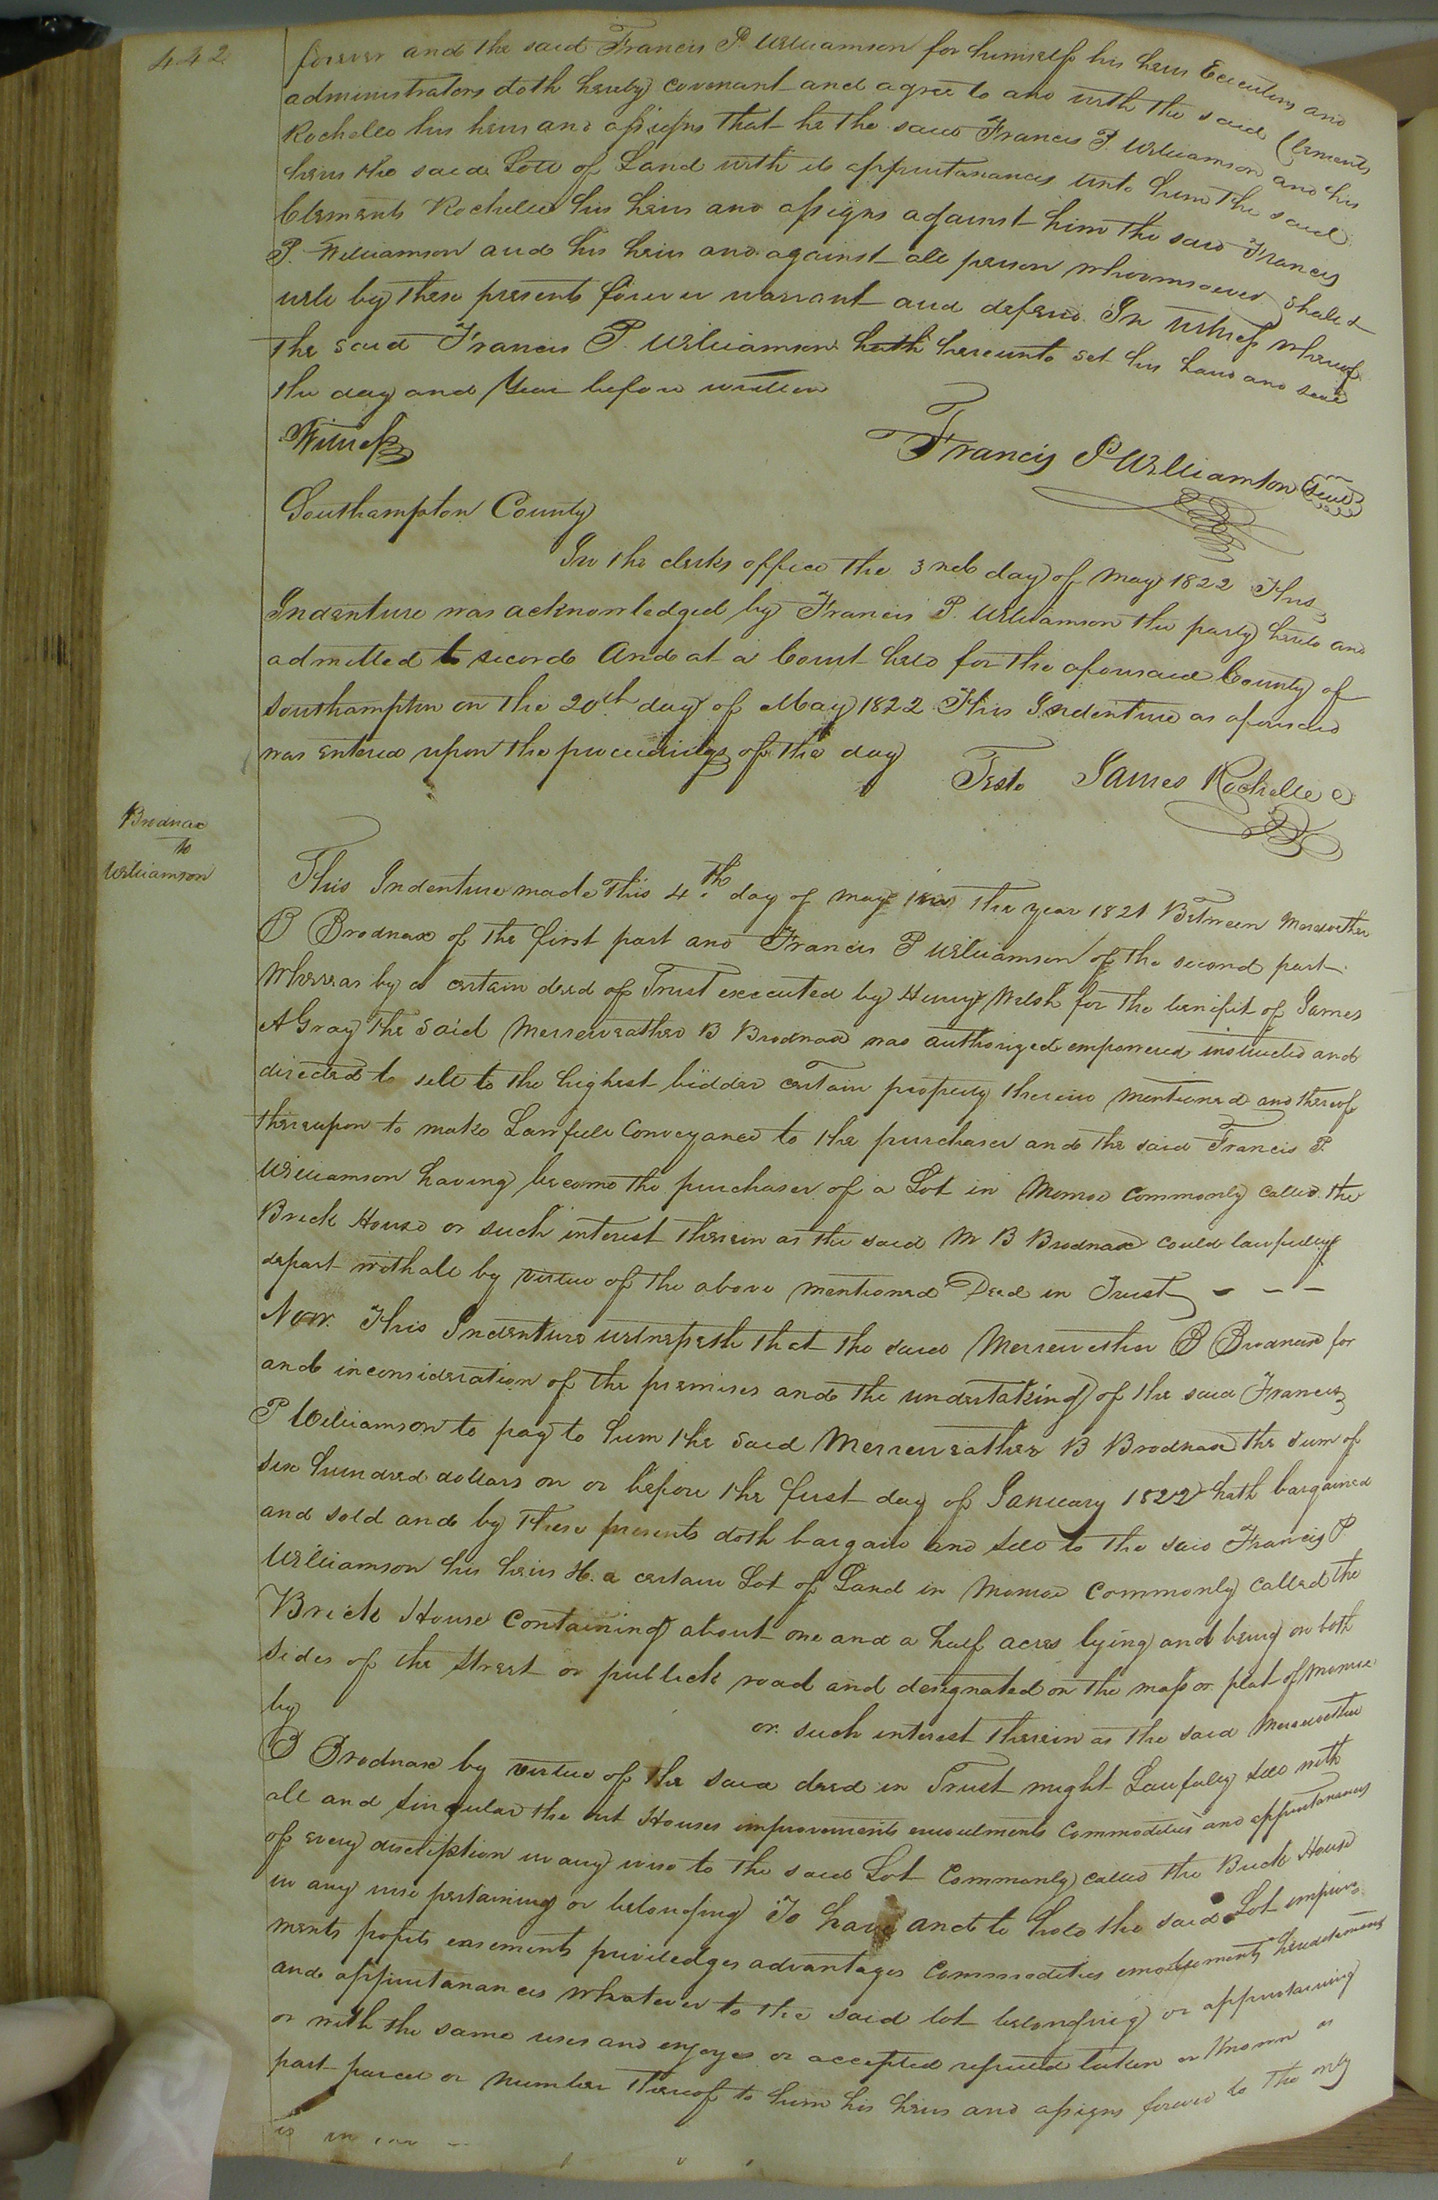 442
forever and the said Francis P. Williamson for himself his heirs Executors and
administrators doth hereby covenant and agree to and with the said Clements
Rochelle his heirs and assigns that he the said Francis P. Williamson and his
heirs the said Lott of Land with its appurtanances unto him the said
Clements Rochelle his heirs and assigns against him the said Francis
P. Williamson and his heirs and against all person whoomsoever shall &
will by these presents forever warrant and defend. In witness whereof
the said Francis P. Williamson hath hereunto set his hand and seal
the day and Year before written
Witness
Francis P Williamson Seal
Southampton County
In the clerks office the 3rd day of May 1822 This
Indenture was acknowledged by Francis P. Williamson the party hereto and
admitted to record And at a Court held for the aforesaid County of
Southampton on the 20th day of May 1822 This Indenture as aforesaid
was entered upon the proceedings of the day
Teste James Rochelle C
Brodnax
to
Williamson
This Indenture made this 4th day of May in the year 1821 Between Merewether
B Brodnax of the first part and Francis P Williamson of the second part
Whereas by a certain deed of Trust executed by Henry Welsh for the benefit of James
A Gray the said Merrewether B Brodnax was authorized empowered instructed and
directed to sell to the highest bidder certain property therein mentioned and thereof
thereupon to make Lawfull Conveyance to the purchaser and the said Francis P.
Williamson having become the purchaser of a Lot in Monroe Commonly called the
Brick House or such interest therein as the said M B Brodnax could lawfully
depart withall by virtue of the above mentioned Deed in Trust - - -
Now. This Indenture witnesseth that the said Merrewether B Brodnax for
and inconsideration of the premises and the undertaking of the said Francis
P Williamson to pay to him the said Merrewether B Brodnax the sum of
six hundred dollars on or before the first day of January 1822 hath bargained
and sold and by these presents doth bargain and sell to the said Francis P.
Williamson his heirs &c. a certain Lot of Land in Monroe Commonly called the
Brick House Containing about one and a half acres lying and being on both
sides of the street or publick road and designated on the map or plat of Monroe
by or such interest therein as the said Merewether
B Brodnax by virtue of the said deed in Trust might Lawfully sell with
all and singular the out Houses improvements emoulments Commodities and appurtanances
of every discription in any wise to the said Lot Commonly called the Brick House
in any wise pertaining or belonging To have and to hold the said Lot improve
ments profits easements priviledges advantages Commodities emoulements heriditaments
and appurtanances whatever to the said lot belonging or appurtaining
or with the same uses and enjoyed or accepted reputed taken or Known as
part parcel or number thereof to him his heirs and assigns forever to the only